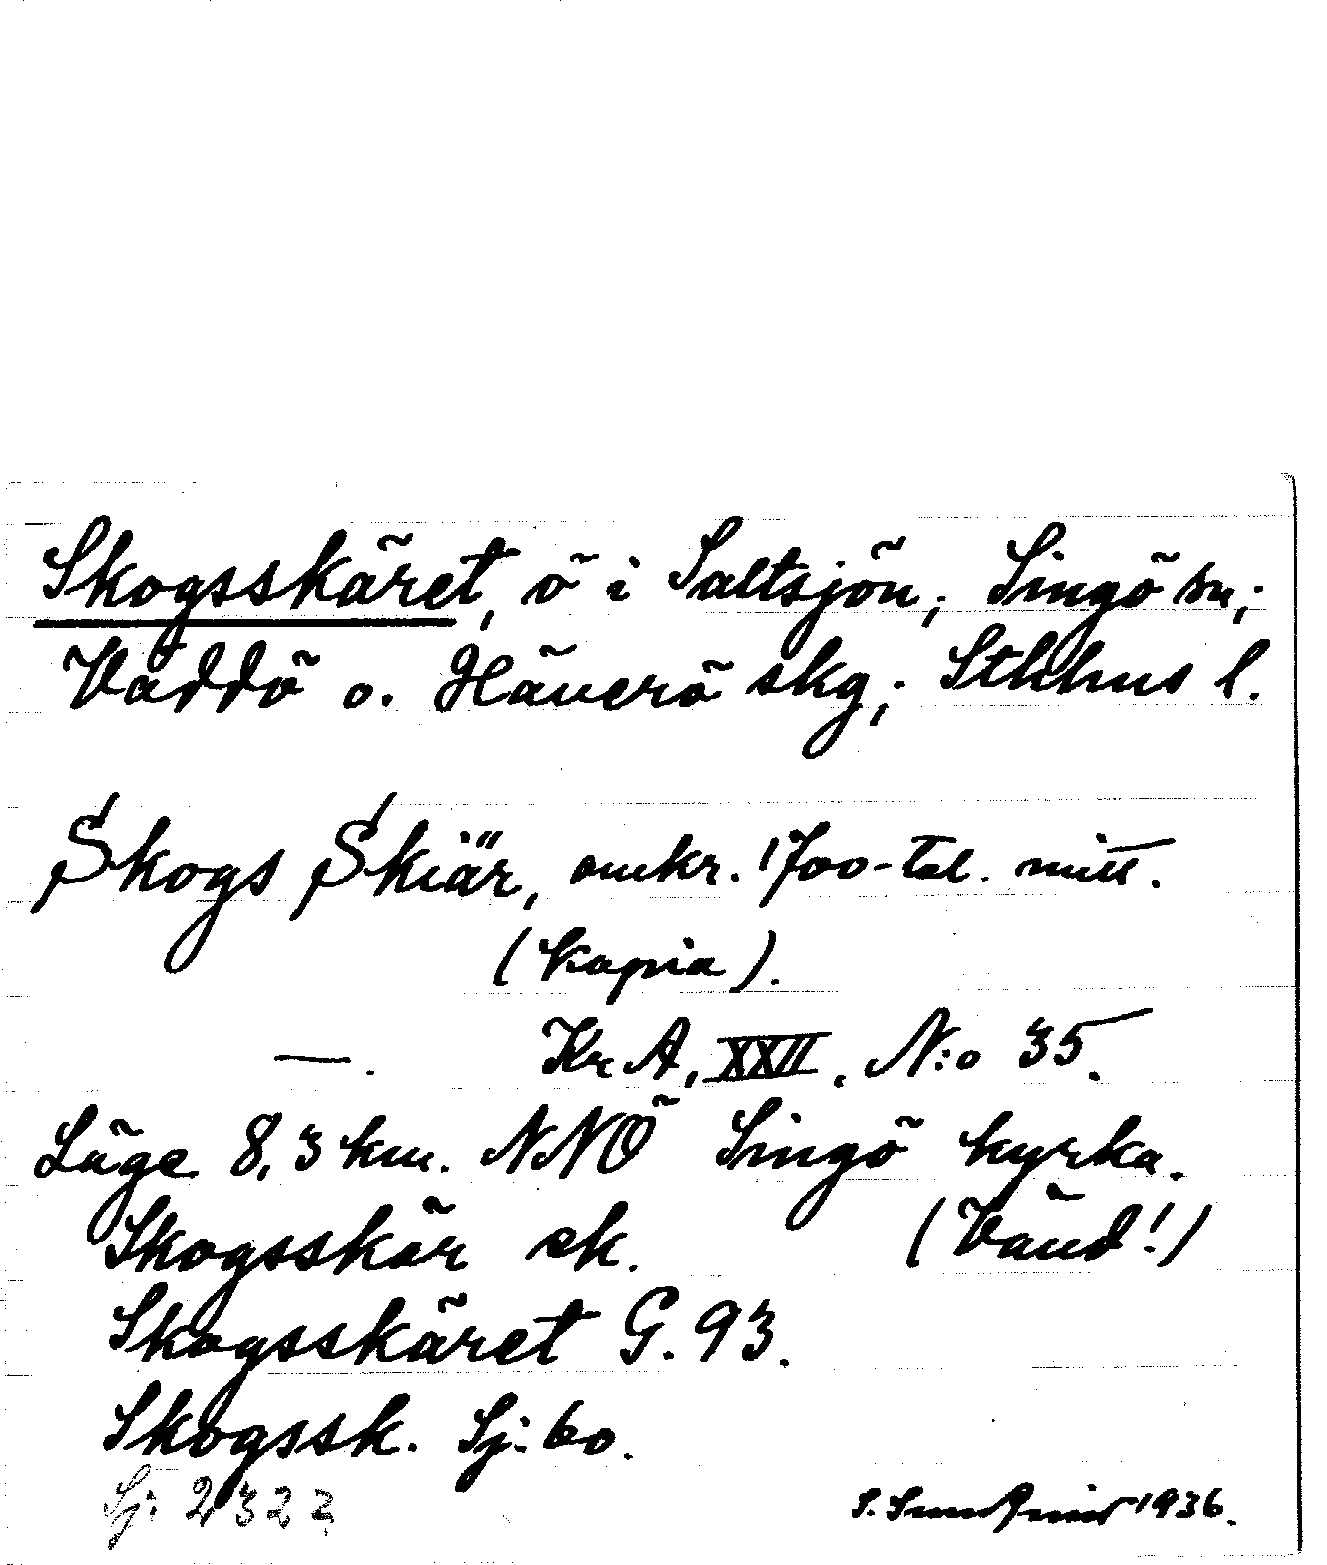 Skogsskäret, ö i Saltsjön; Singö sn;
Väddö o. Häverö skg; Sthlms l.
Skogs Skiär, omkr. 1700-tal. mitt.
(kopia).
—. Kr A, XXII, N:o 35.
Läge 8,3 km. NNÖ Singö kyrka.
Skogsskär ek. (Vänd!)
Skogsskäret G. 93.
Skogssk. Sj: 60.
Sj: 2322
S. 1936.